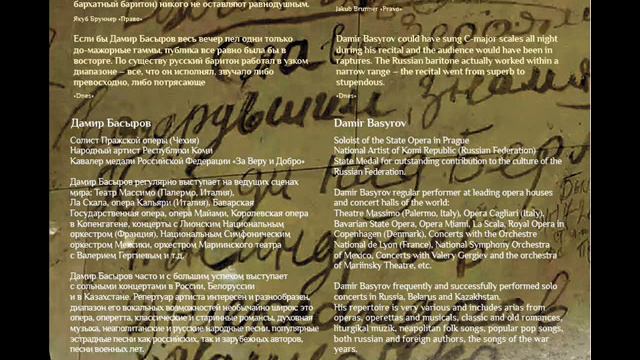 бархатный баритон) никого не оставляют равнодушным.
Якуб Бруннер «Право»
Если бы Дамир Басыров весь вечер пел одни только
до-мажорные гаммы, публика все равно была бы в
восторге. По существу русский баритон работал в узком
диапазоне – все, что он исполнял, звучало либо
превосходно, либо потрясающе
«Dnes»
Дамир Басыров
Солист Пражской оперы (Чехия)
Народный артист Республики Коми
Кавалер медали Российской Федерации «За Веру и Добро»
Дамир Басыров регулярно выступает на ведущих сценах
мира: Театр Массимо (Палермо, Италия),
Ла Скала, опера Кальяри (Италия), Баварская
Государственная опера, опера Майами, Королевская опера
в Копенгагене, концерты с Лионским Национальным
оркестром (Франция), Национальным Симфоническим
оркестром Мексики, оркестром Мариинского театра
с Валерием Гергиевым и т.д.
Дамир Басыров часто и с большим успехом выступает
с сольными концертами в России, Белоруссии
и в Казахстане. Репертуар артиста интересен и разнообразен,
диапазон его вокальных возможностей необычайно широк: это
опера, оперетта, классические и старинные романсы, духовная
музыка, неаполитанские и русские народные песни, популярные
эстрадные песни как российских, так и зарубежных авторов,
песни военных лет.
Jakub Brunner «Pravo»
Damir Basyrov could have sung C-major scales all night
during his recital and the audience would have been in
raptures. The Russian baritone actually worked within a
narrow range – the recital went from superb to
stupendous.
«Dnes»
Damir Basyrov
Soloist of the State Opera in Prague
National Artist of Komi Republic (Russian Federation)
State Medal for outstanding contribution to the culture of the
Russian Federation.
Damir Basyrov regular performer at leading opera houses
and concert halls of the world:
Theatre Massimo (Palermo, Italy), Opera Cagliari (Italy),
Bavarian State Opera, Opera Miami, La Scala, Royal Opera in
Copenhagen (Denmark), Concerts with the Orchestre
National de Lyon (France), National Symphony Orchestra
of Mexico, Concerts with Valery Gergiev and the orchestra
of Mariinsky Theatre, etc.
Damir Basyrov frequently and successfully performed solo
concerts in Russia, Belarus and Kazakhstan.
His repertoire is very various and includes arias from
operas, operettas and musicals, classic and old romances,
liturgikal muzik, neapolitan folk songs, popular pop songs,
both russian and foreign authors, the songs of the war
years.